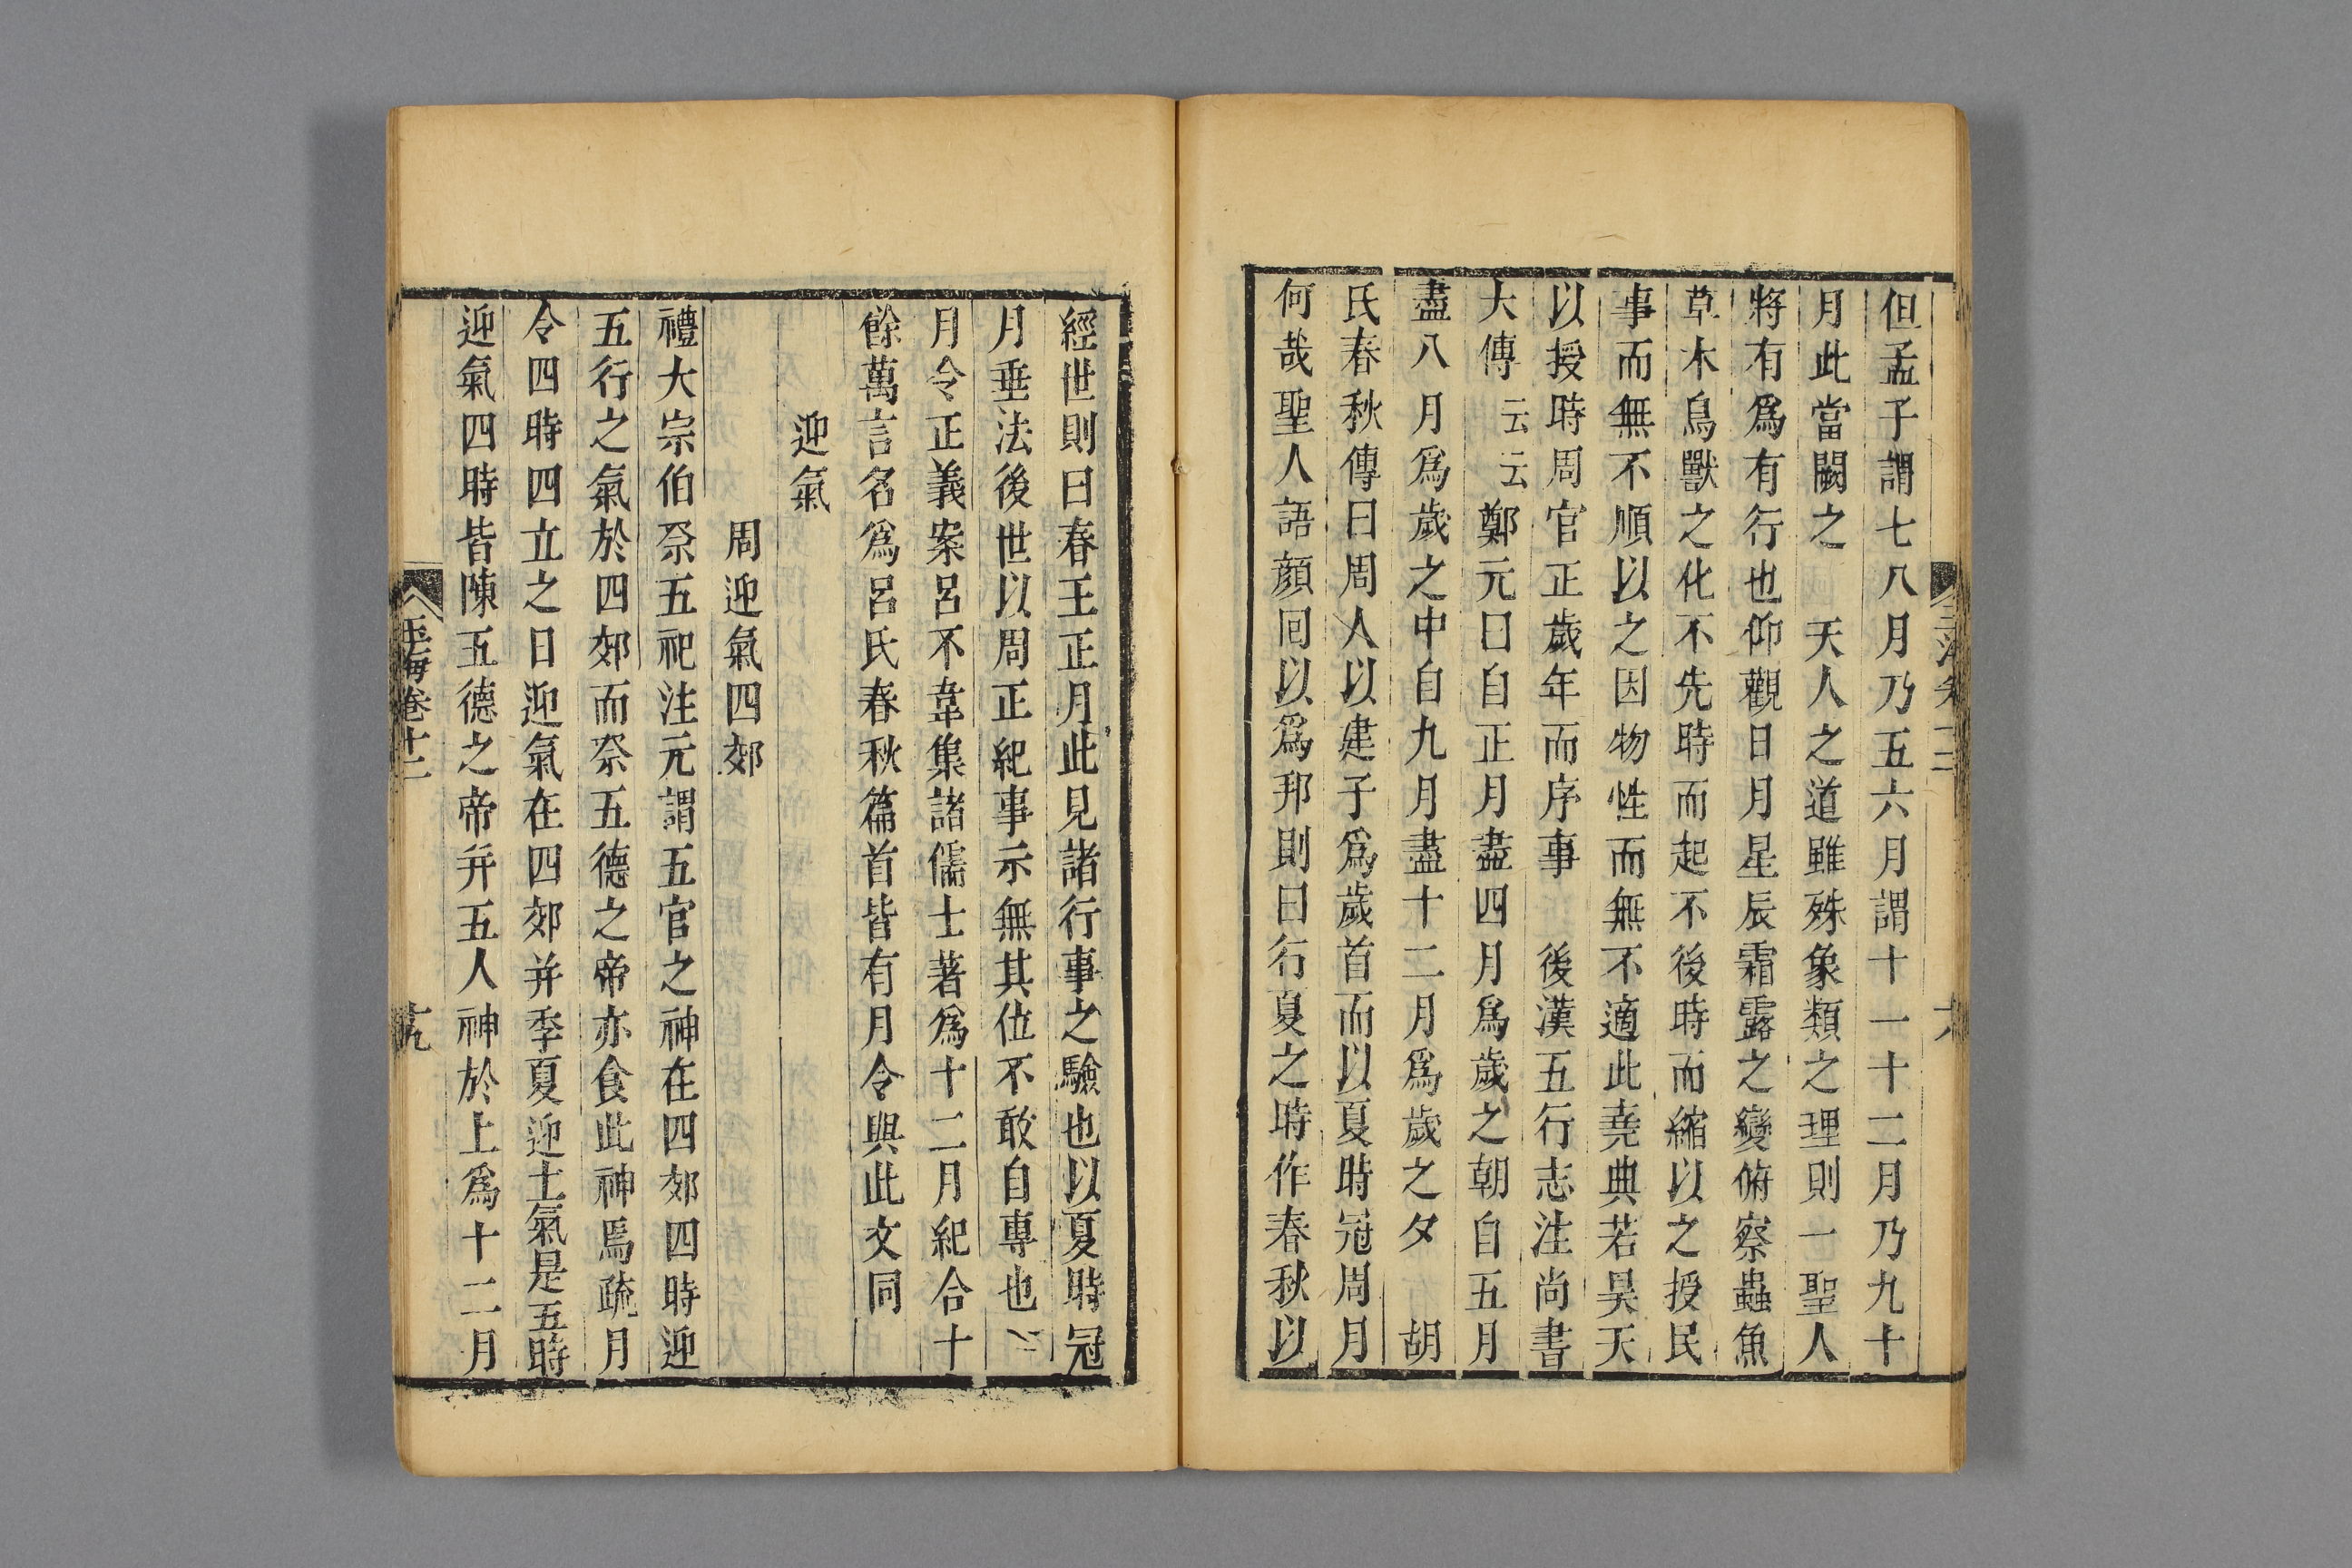 但孟子謂七八月乃五六月謂十一十二月乃九十
月此當闕之　天人之道雖殊象類之理則一聖人
將有爲有行也仰觀日月星辰霜露之變俯察蟲魚
草木鳥獸之化不先時而起不後時而縮以之授民
事而無不順以之因物性而無不適此堯典若昊天
以授時周官正歲年而序事　後漢五行志注尚書
大傳云云鄭元曰自正月盡四月爲歲之朝自五月
盡八月爲歲之中自九月盡十二月爲歲之夕　胡
氏春秋傳曰周人以建子爲歲首而以夏時冠周月
何哉聖人語顔囘以爲邦則曰行夏之時作春秋以
經世則曰春王正月此見諸行事之驗也以夏時冠
月垂法後世以周正紀事示無其位不敢自專也
月令正義案呂不韋集諸儒士著爲十二月紀合十
餘萬言名爲呂氏春秋篇首皆有月令與此文同
迎氣
周迎氣四郊
禮大宗伯祭五祀注元謂五官之神在四郊四時迎
五行之氣於四郊而祭五德之帝亦食此神焉疏月
令四時四立之日迎氣在四郊并季夏迎土氣是五時
迎氣四時皆陳五德之帝并五人神於上爲十二月
玉海卷十二
十九